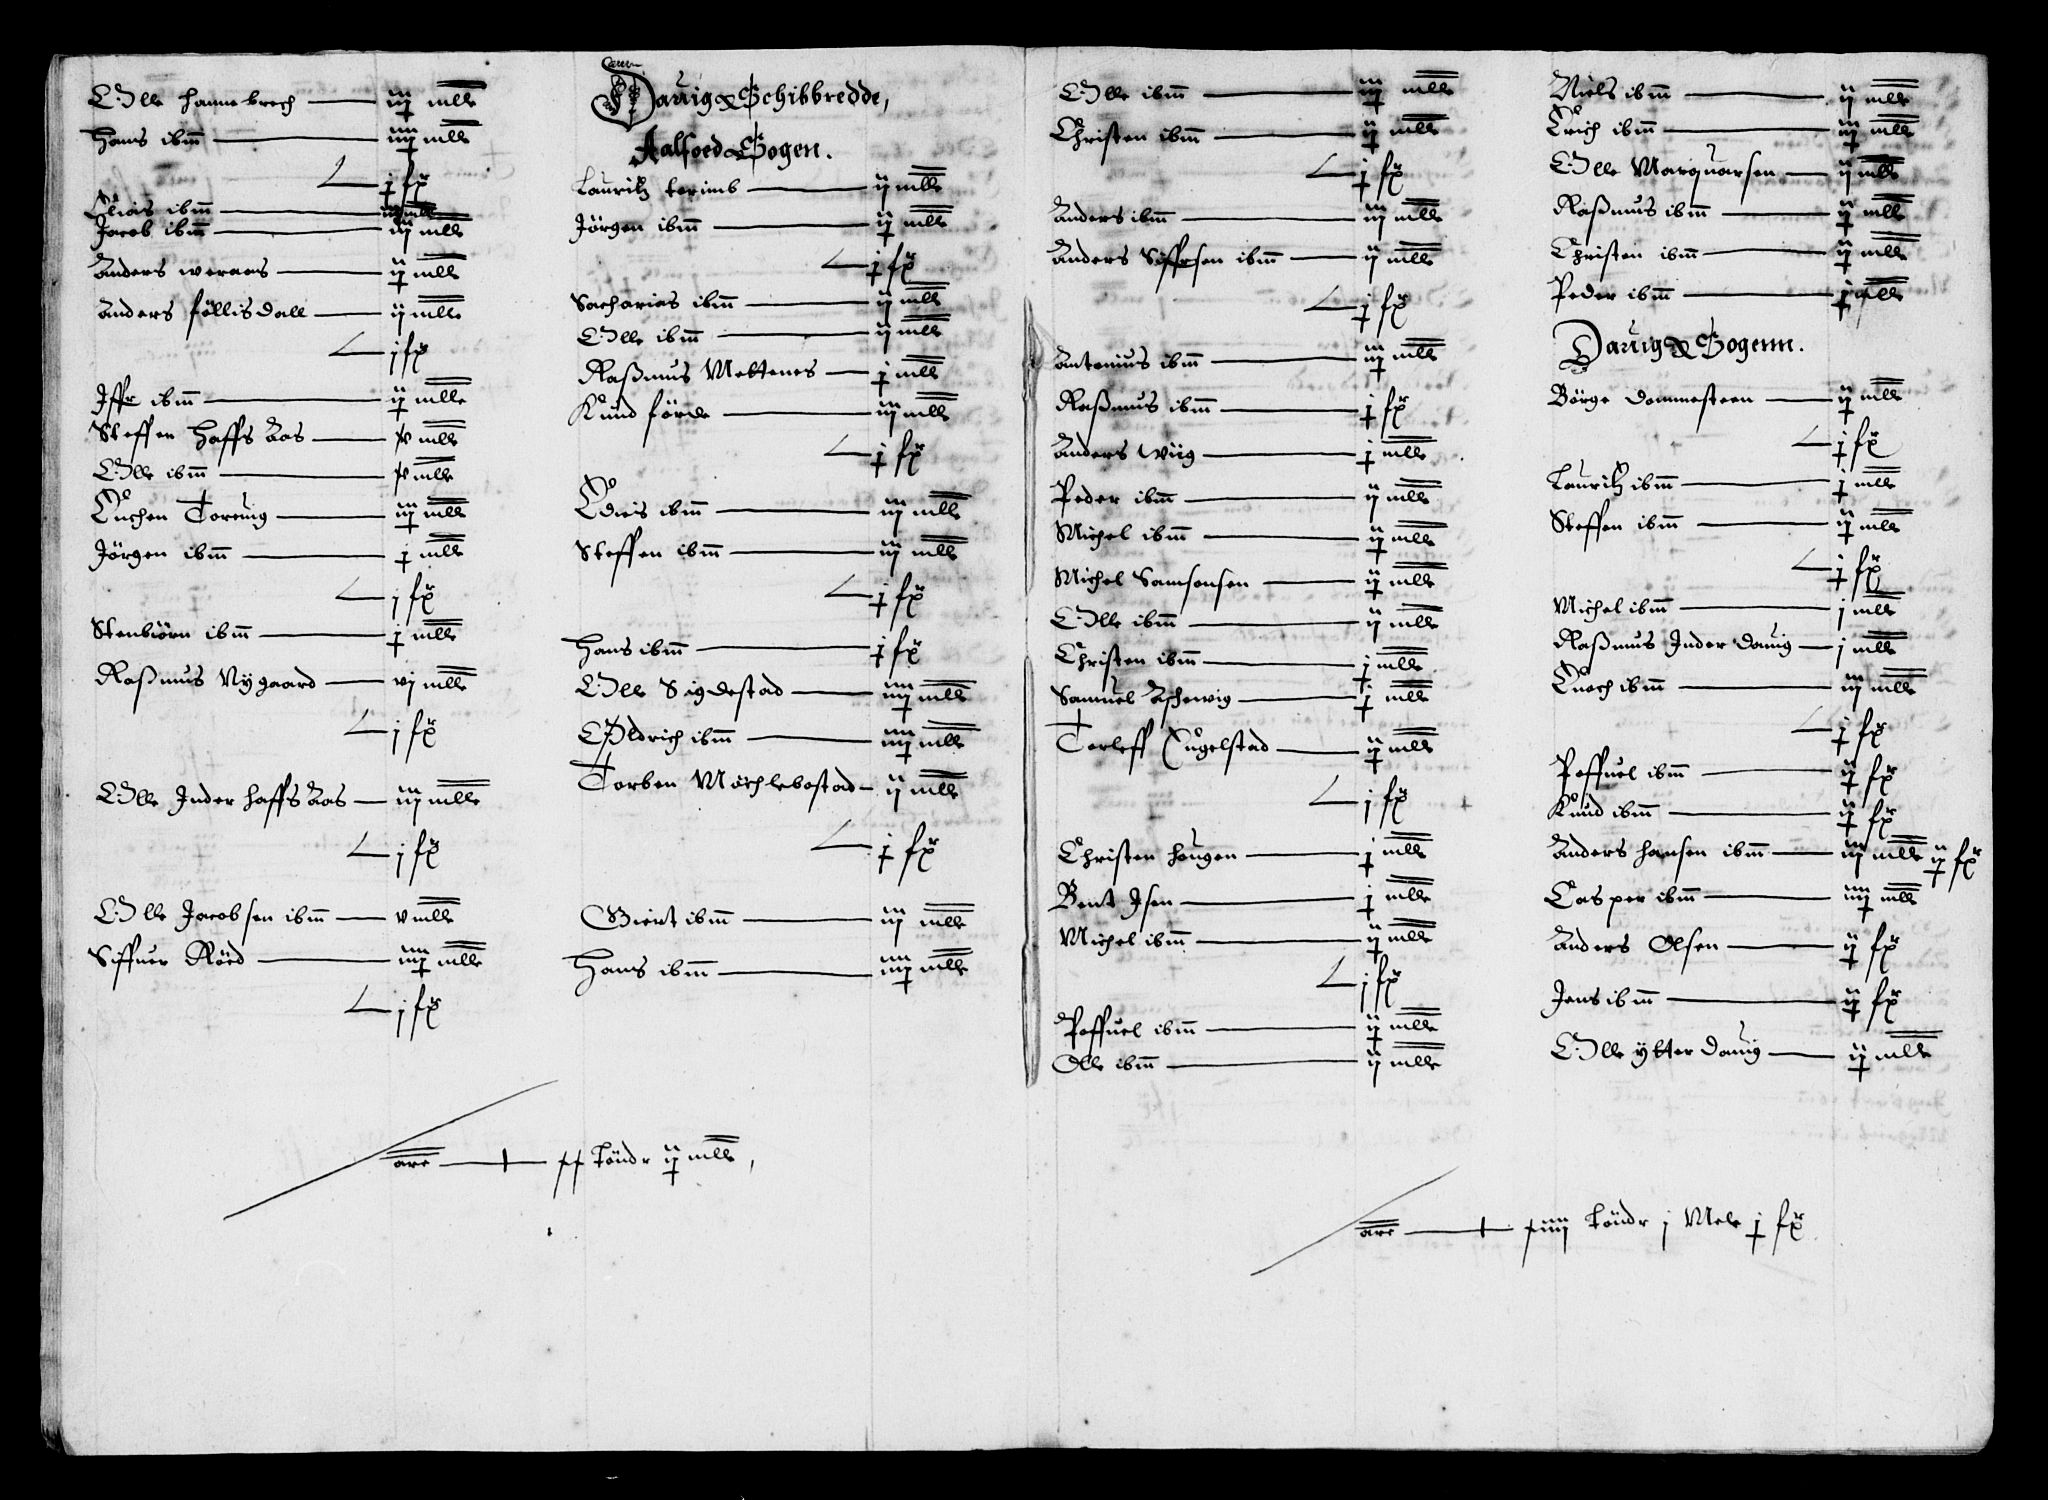 Olle Hannebrech — iij mele
Hans ibm — iiij mele
j fr
Elias ibm — iij mele
Jacob ibm — iij mele
Anders weraas — ij mele
Anders föllisdall — ij mele
j fr
Iffr ibm — ij mele
Steffen Haffs Aas — mele
Olle ibm — mele
Enchen Torvig — iij mele
Jörgen ibm — j mele
j fr
Stenbiörn ibm — j mele
Rasmus Nygaard — vj mele
j fr
Olle Inder Haffs Aas — iij mele
j fr
Olle Jacobsen ibm — v mele
Siffuer Röed — iiij mele
j fr
Dauigs Schibbredde,
Aalfoed Sogen.
Lauritz terinb — ij mele
Jörgen ibm — ij mele
j fr
Sacharias ibm — ij mele
Olle ibm — ij mele
Rasmus Mettenes — j mele
Knud förde — iij mele
j fr
Edies ibm — iij mele
Steffen ibm — iij mele
j fr
Hans ibm — j fr
Olle Sigdestad — iiij mele
Oldrich ibm — iiij mele
Torben Möchlebostad — ij mele
j fr
Gient ibm — iij mele
Hans ibm — iiij mele
are — Töndr ij mele,
Olle ibm — iij mele
Christen ibm — ij mele
j fr
Anders ibm — iij mele
Anders Siffrsen ibm — ij mele
j fr
Antonius ibm — iij mele
Rasmus ibm — j fr
Anders wiig — j mele
Peder ibm — ij mele
Michel ibm — ij mele
Michel Samsonsen — ij mele
Olle ibm — ij mele
Christen ibm — j mele
Samuel Aschewig — j mele
Torleff Eugelstad — ij mele
j fr
Christen Hougen — j mele
Bent Isen — j mele
Michel ibm — ij mele
j fr
Poffuel ibm — ij mele
Olle ibm — ij mele
Niels ibm — ij mele
Erich ibm — iij mele
Olle Marquarsen — ij mele
Rasmus ibm — ij mele
Christen ibm — ij mele
Peder ibm — j mele
Dauigs Sogenn.
Börge Dommesteen — ij mele
j fr
Lauritz ibm — j mele
Steffen ibm — ij mele
j fr
Michel ibm — j mele
Rasmus Inder Dauig — j mele
Enoch ibm — iij mele
j fr
Poffuel ibm — ij fr
Knud ibm — ij fr
Anders Hansen ibm — iij mele ij fr
Casper ibm — iiij mele
Anders Olsen — ij fr
Jens ibm — ij fr
Olle ytter Dauig — ij mele
are — Töndr j Mele j fr